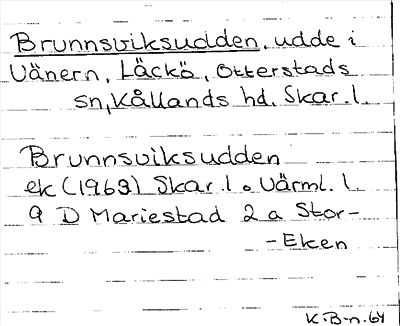 Brunnsviksudden, udde i
Vänern, Läckö, Otterstads
sn, Kållands hd. Skar. l.
Brunnsviksudden
ek (1969) Skar. l o Värml. l.
9 D Mariestad 2 a Stor-
-Eken
K.B-n. 64